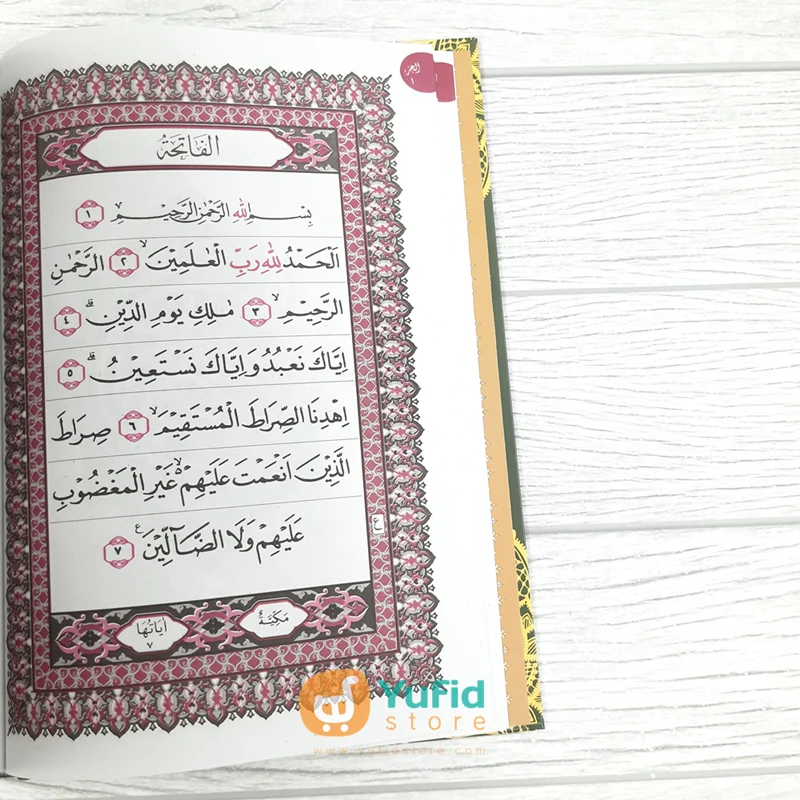 الجزء
١
الفَاتِحَةُ
بِسْمِ اللهِ الرَّحْمٰنِ الرَّحِيْمِ ۙ ١
اَلْحَمْدُ لِلّٰهِ رَبِّ الْعٰلَمِيْنَ ۙ ٢ الرَّحْمٰنِ
الرَّحِيْمِ ۙ ٣ مٰلِكِ يَوْمِ الدِّيْنِ ۗ ٤
اِيَّاكَ نَعْبُدُ وَاِيَّاكَ نَسْتَعِيْنُ ۗ ٥
اِهْدِنَا الصِّرَاطَ الْمُسْتَقِيْمَ ۙ ٦ صِرَاطَ
الَّذِيْنَ اَنْعَمْتَ عَلَيْهِمْ ەۙ غَيْرِ الْمَغْضُوْبِ
عَلَيْهِمْ وَلَا الضَّاۤلِّيْنَ ࣖ ٧
ع
مَكِّيَّةٌ
اٰيَاتُهَا
٧
YuFid
store
www.yufidstore.com